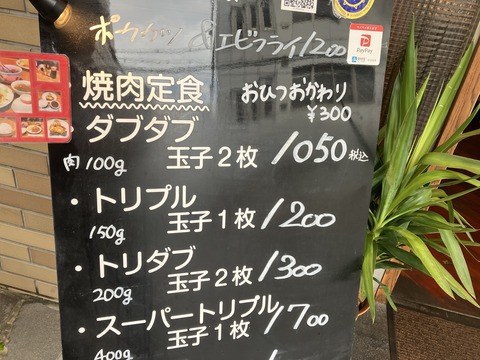 エビフライ 1200
PayPay
焼肉定食
おひつおかわり
¥300
・ダブダブ
肉100g 玉子2枚 1050税込
・トリプル
150g 玉子1枚 1200
・トリダブ
200g 玉子2枚 1300
・スーパートリプル
400g 玉子1枚 1700